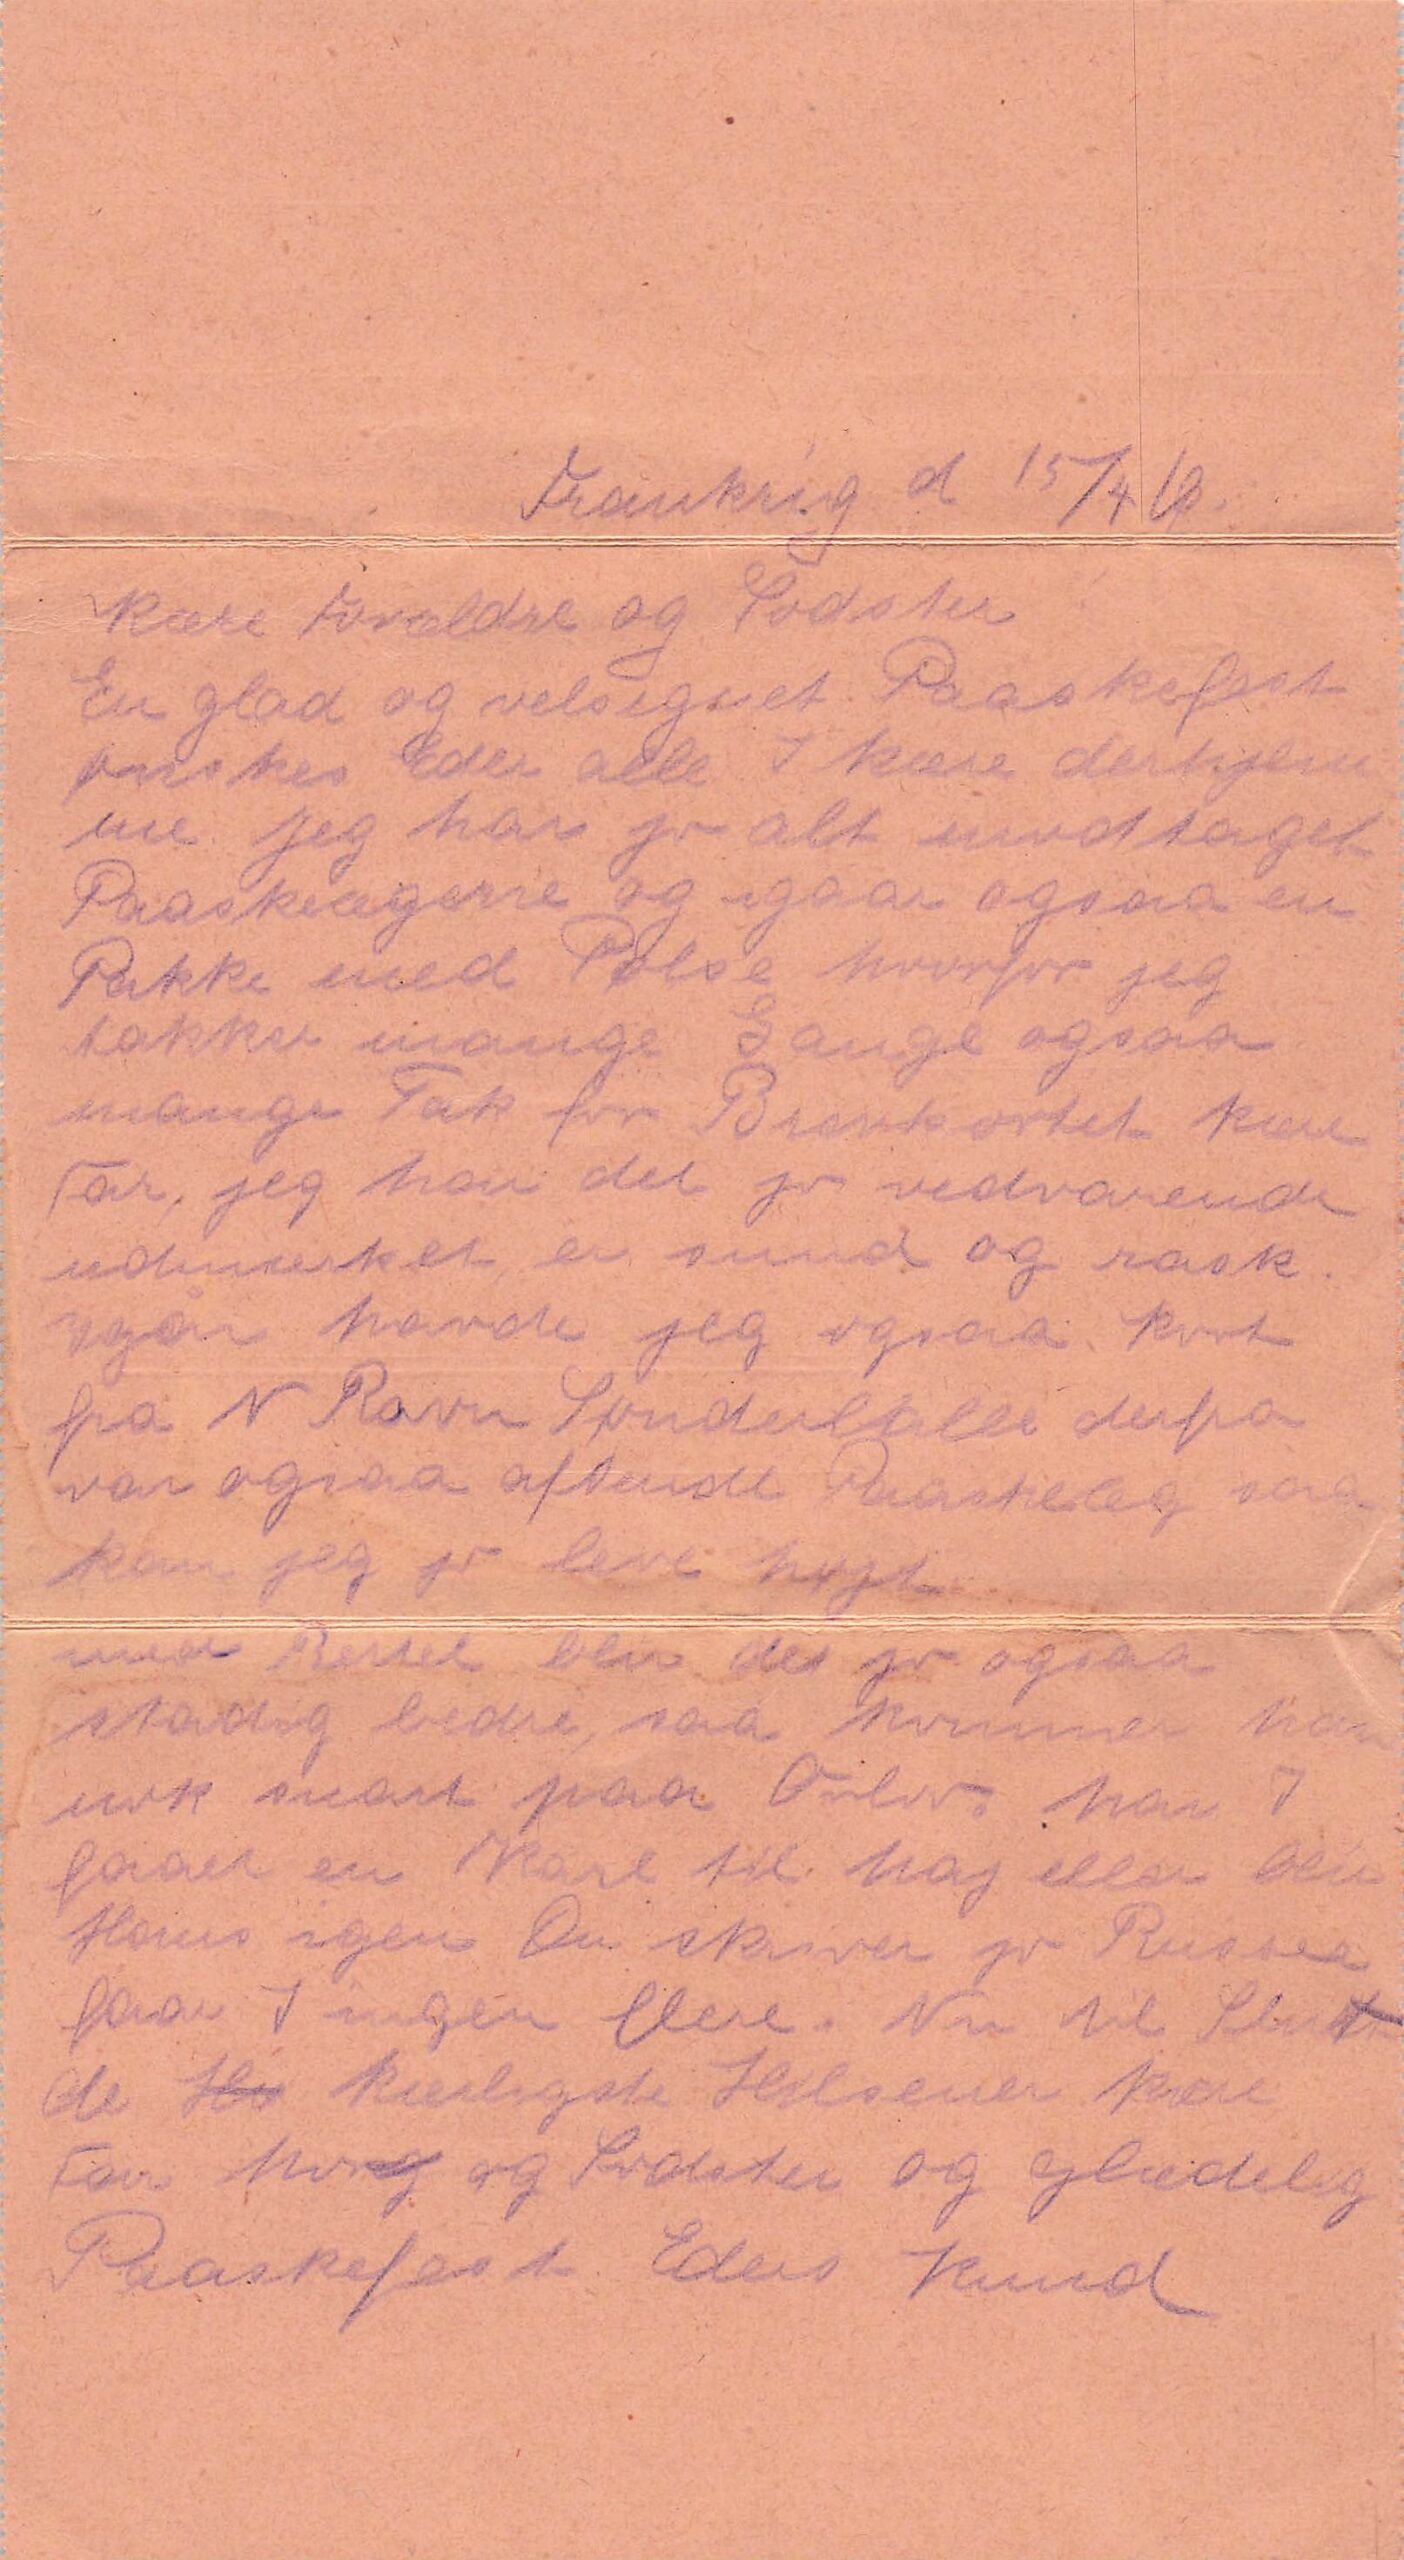 Frankrig d 15/4 16.
Kære Forældre og Sødster
En glad og velsignet Paaskefest
ønskes Eder alle I kære derhjem
me. jeg har jo alt modtaget
Paaskeægerne og igaar ogsaa en
Pakke med Pølse hvorfor jeg
takker mange Gange ogsaa
mange Tak for Brevkortet kære
Far, jeg har det jo vedvarende
udmærket, er sund og rask.
Igår havde jeg ogsaa Kort
fra N Ravn Sønderballe derfra
var ogsaa afsendt Paaskeæg saa
kan jeg jo leve højt
med Bertel bliv det jo ogsaa
stadig bedre, saa kommer han
nok snart paa Orlov. har I
faaet en Karl til Maj eller bliv
Hans igen Du skriver jo Russer
faar I ingen flere. Nu til Slut
de kærligste Hilsener kære
Far Mor og Sødster og glædelig
Paaskefest Eders Knud